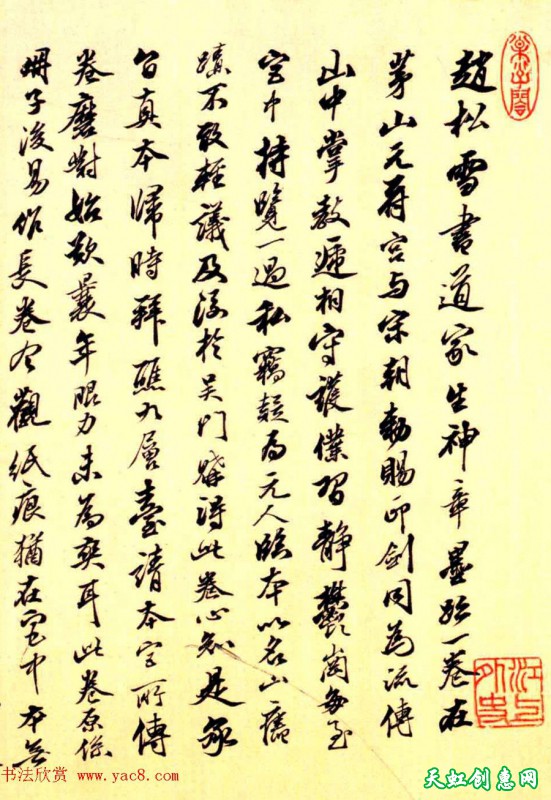 趙松雪書道家生神章墨跡一卷在
茅山元符宮與宋朝勅賜印劍同為流傳
山中掌教遞相守護僕習靜鬱岡每至
宮中持覽一過私竊疑為元人臨本以名山舊
蹟不敢輕議及後於吳門購得此卷心知是家
真本歸時拜醮九層臺請本宮所傳
卷磨對始歎曩年眼力未為爽耳此卷原係
冊子後易作長卷今觀紙痕猶在宮中本無
江上外史
书法欣赏 www.yac8.com
天虹创惠网